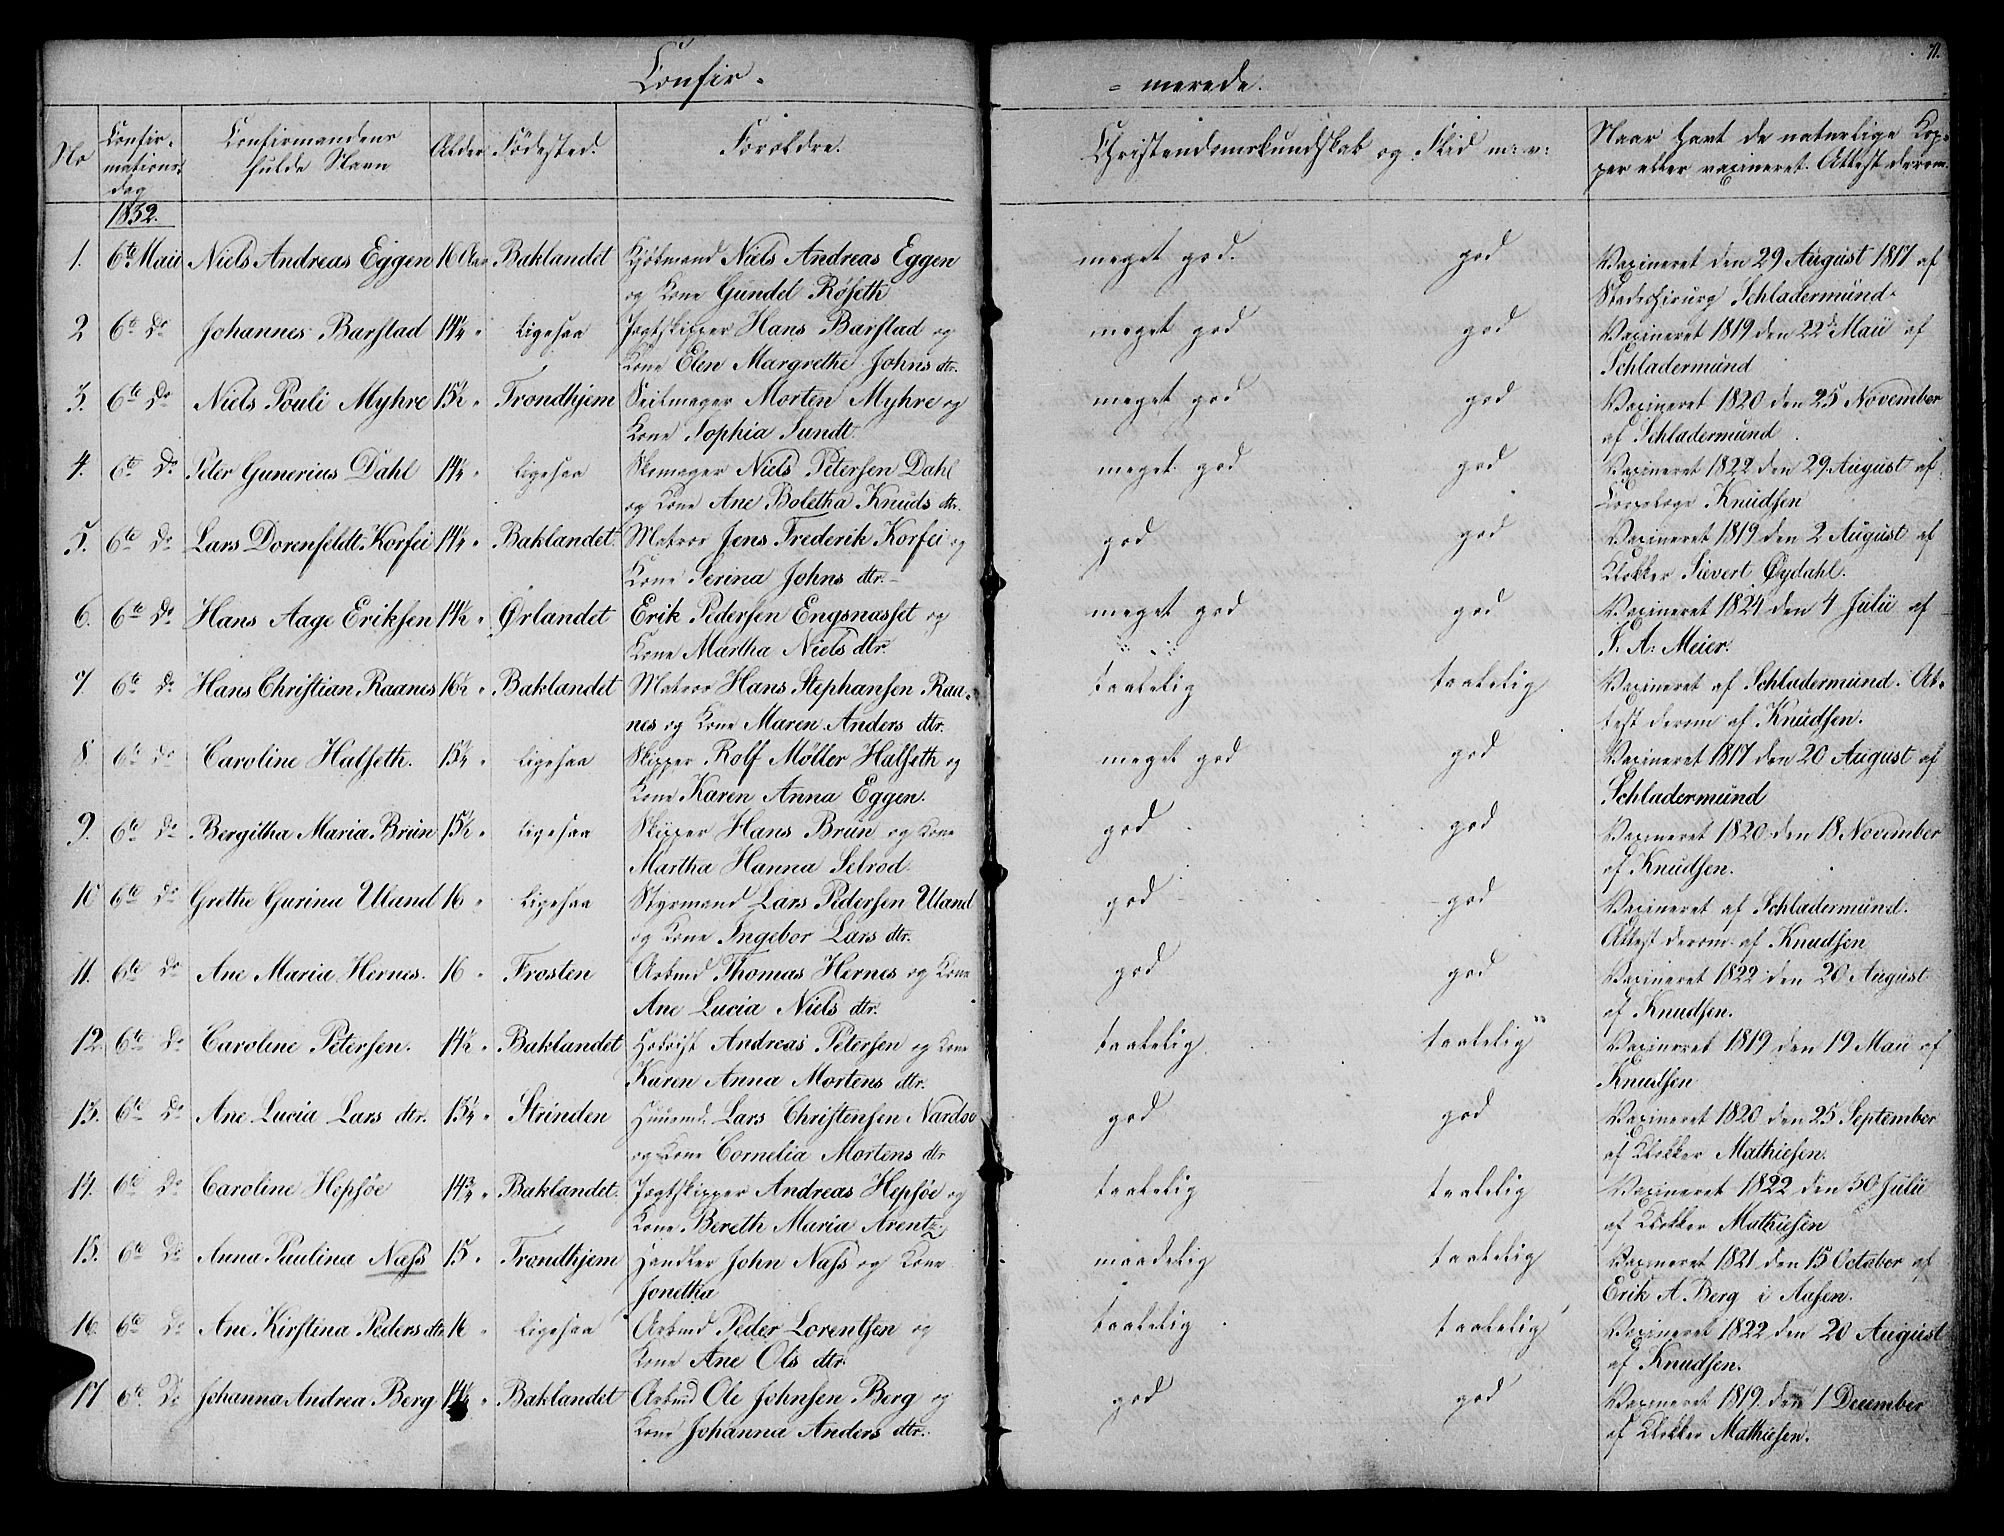 71.
Confir-
-merede.
No
Confir-
mations-
dag
Confirmandens
fulde Navn
Alder
Födested.
Foreldre.
Christendomskundskab og Flid m: v:
Naar havt de naturlige Kop-
per eller vaxineret. Attest derom.
1832.
1. 6te Maii Niels Andreas Eggen 16 Aar Baklandet Kjöbmand Niels Andreas Eggen meget god. god Vaxineret den 29 August 1817 af
og Kone Gundel Røseth Stadschirurg Schladermund.
2 6te Do Johannes Barstad 14¼ " ligesaa Jagtskipper Hans Barstad og meget god god Vaxineret 1819 den 22de Maii af
Kone Elen Margrethe Johns dtr. Schladermund
3. 6te Do Niels Pouli Myhre 15½ " Trondhjem Seilmager Morten Myhre og meget god god Vaxineret 1820 den 25 November
Kone Sophia Sundt. af Schladermund
4. 6te Do Peter Gunerius Dahl 14¼ " ligesaa Skomager Niels Petersen Dahl meget god god Vaxineret 1822 den 29 August af
og Kone Ane Boletha Knuds dtr. Corpslæge Knudsen
5. 6te Do Lars Dorenfeldt Korfei 14¼ " Baklandet. Matros Jens Frederik Korfei og god god Vaxineret 1819 den 2 August af
Kone Serina Johns dtr. Klokker Sievert Øydahl.
6. 6te Do Hans Aage Eriksen 14½ " Ørlandet Erik Pedersen Engsnasset og meget god god Vaxineret 1824 den 4 Julii af
Kone Martha Niels dtr. J. A: Meier.
7. 6te Do Hans Christian Raanes 16½ " Baklandet Matros Hans Stephansen Raa- taalelig taalelig Vaxineret af Schladermund. At-
nes og Kone Maren Anders dtr. test derom af Knudsen.
8. 6te Do Caroline Halseth. 15¼ " ligesaa Skipper Rolf Møller Halseth og meget god god Vaxineret 1817 den 20 August af
Kone Karen Anna Eggen. Schladermund
9. 6te Do Bergitha Maria Brun 15½ " ligesaa Skipper Hans Brun og Kone god god Vaxineret 1820 den 18 November
Martha Hanna Selrod. af Knudsen.
10 6te Do Grethe Gurina Uland 16 " ligesaa Styrmand Lars Pedersen Uland god god Vaxineret af Schladermund.
og Kone Ingebor Lars dtr. Attest derom af Knudsen
11. 6te Do Ane Maria Hernes. 16 " Frosten Arbmd Thomas Hernes og Kone god god Vaxineret 1822 den 20 August
Ane Lucia Niels dtr. af Knudsen.
12. 6te Do Caroline Petersen. 14½ " Baklandet Andreas Petersen og Kone taalelig. taalelig Vaxineret 1819 den 19 Maii af
Karen Anna Mortens dtr. Knudsen
13. 6te Do Ane Lucia Lars dtr. 15¼ " Strinden Huusmd. Lars Christensen Nardoe god god Vaxineret 1820 den 25 September
og Kone Cornelia Mortens dtr af Klokker Mathiesen.
14. 6te Do Caroline Hepsöe 14¾ " Baklandet. Jagtskipper Andreas Hepsöe og taalelig taalelig Vaxineret 1822 den 30 Julii
Kone Bereth Maria Arentz. af Klokker Mathiesen
15. 6te Do Anna Paulina Næss 15 " Trondhjem Handler John Næss og Kone maadelig taalelig Vaxineret 1821 den 15 October af
Jonetha Erik A. Berg i Aasen.
16. 6te Do Ane Kirstina Peders dtr. 16 " ligesaa Arbmd Peder Lorentsen og taalelig taalelig Vaxineret 1822 den 20 August
Kone Ane Ols dtr. af Knudsen.
17 6te Do Johanna Andrea Berg 14½ " Baklandet Arbmd Ole Johnsen Berg og god god Vaxineret 1819 den 1 December
Kone Johanna Anders dtr. af Klokker Mathiesen.